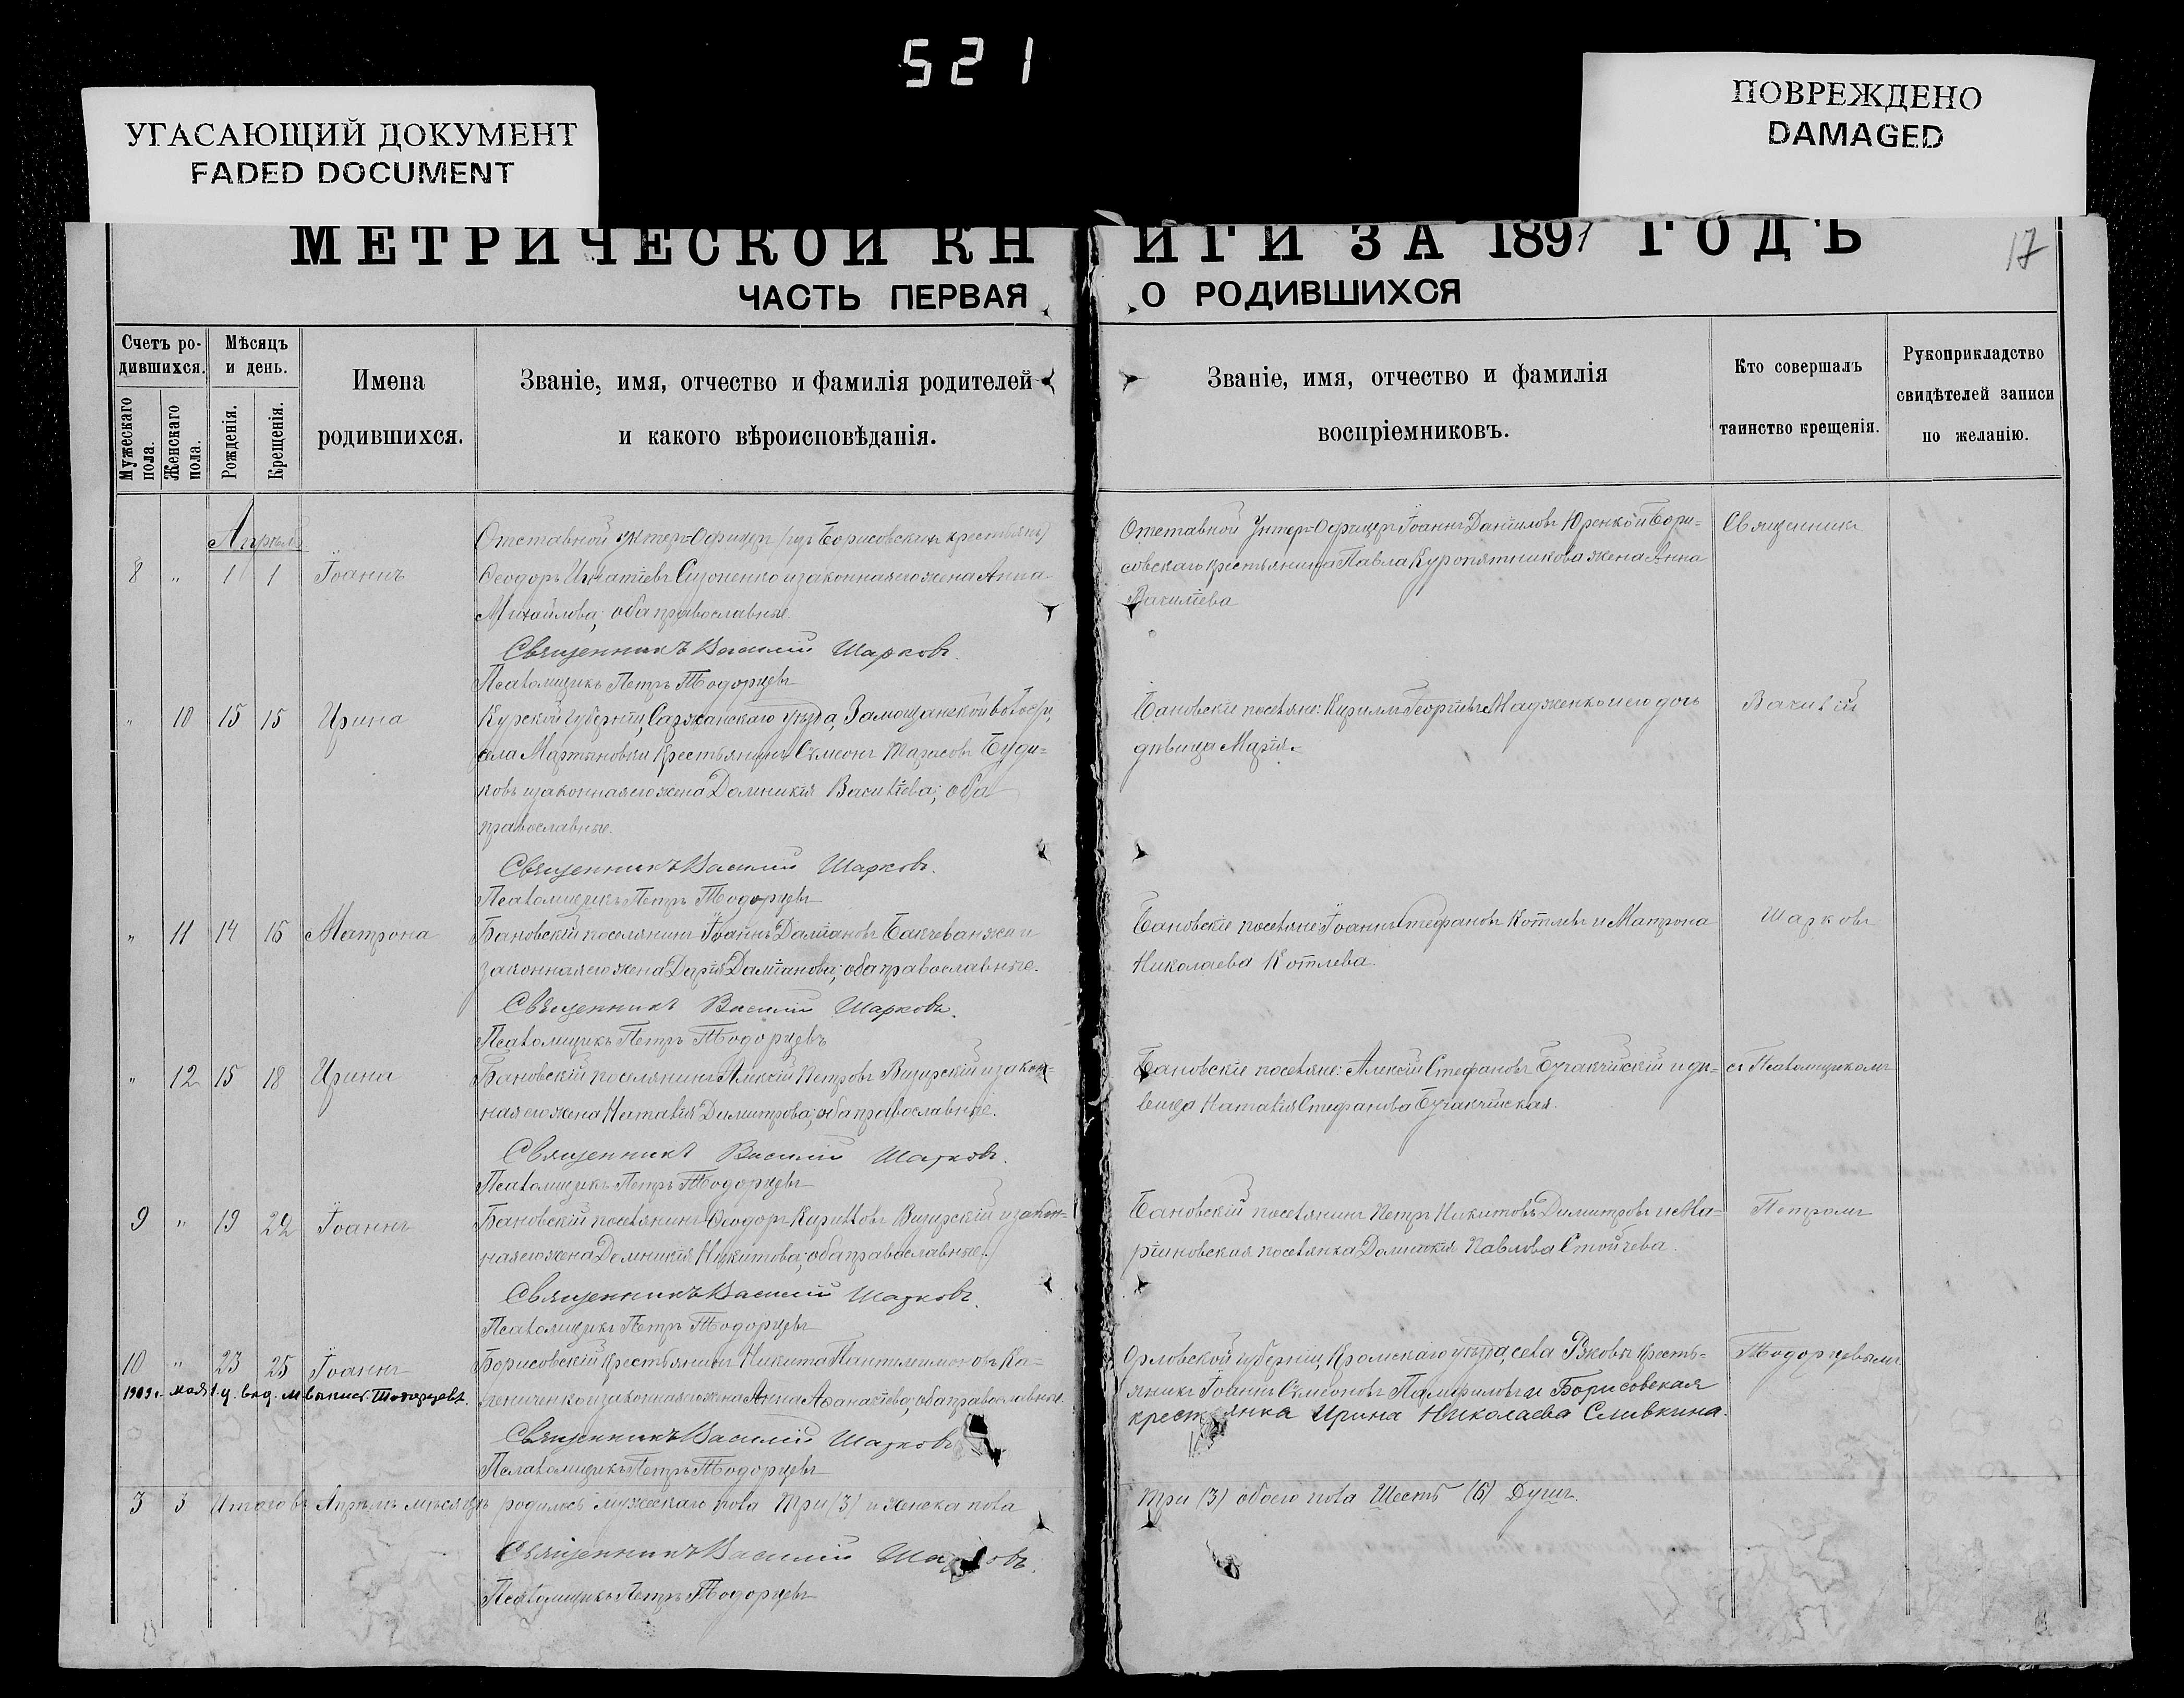 521
УГАСАЮЩИЙ ДОКУМЕНТ
FADED DOCUMENT
ПОВРЕЖДЕНО
DAMAGED
МЕТРИЧЕСКОЙ КНИГИ ЗА 1897 ГОДЪ
17
ЧАСТЬ ПЕРВАЯ О РОДИВШИХСЯ
Счетъ ро-
дившихся.
Мужескаго пола.
Женскаго пола.
Мѣсяцъ
и день.
Рожденія.
Крещенія.
Имена
родившихся.
Званіе, имя, отчество и фамилія родителей
и какого вѣроисповѣданія.
Званіе, имя, отчество и фамилія
воспріемниковъ.
Кто совершалъ
таинство крещенія.
Рукоприкладство
свидѣтелей записи
по желанію.
Апрѣль
8 " 1 1 Іоаннъ
Отставной унтеръ-Офицеръ (изъ Борисовскихъ крестьянъ)
Ѳеодоръ Игнатіевъ Сизоненко и законная его жена Анна
Михайлова; оба православные.
Священникъ Василій Шарковъ.
Псаломщикъ Петръ Тодорцевъ
Отставной Унтеръ-Офицеръ Іоаннъ Даніиловъ Юренко и Бори-
совскаго крестьянина Павла Куропятникова жена Анна
Василіева
Священникъ
" 10 15 15 Ирина
Курской губерніи, уѣзда, волости,
села Мартыновки крестьянинъ Сѵмеонъ Тарасовъ
и законная его жена Домникія Василіева; оба
православные.
Священникъ Василій Шарковъ.
Псаломщикъ Петръ Тодорцевъ
Бановскіе поселяне: Кириллъ Георгіевъ и его дочь
дѣвица Марія.
Василій
" 11 14 16 Матрона
Бановскій поселянинъ Іоаннъ Даміановъ Бакчеванжи и
законная его жена Дарія Даміанова; оба православные.
Священникъ Василій Шарковъ.
Псаломщикъ Петръ Тодорцевъ
Бановскіе поселяне: Іоаннъ Стефановъ Котлевъ и Матрона
Николаева Котлева.
Шарковъ
" 12 15 18 Ирина
Бановскій поселянинъ Алексій Петровъ Визирскій и закон-
ная его жена Наталія Димитрова; оба православные.
Священникъ Василій Шарковъ.
Псаломщикъ Петръ Тодорцевъ
Бановскіе поселяне: Алексій Стефановъ Бучакчійскій и дѣ-
вица Наталія Стефанова Бучакчійская.
съ Псаломщикомъ
9 " 19 22 Іоаннъ
Бановскій поселянинъ Ѳеодоръ Кирилловъ Визирскій и закон-
ная его жена Домникія Никитова; оба православные.
Священникъ Василій Шарковъ.
Псаломщикъ Петръ Тодорцевъ
Бановскій поселянинъ Петръ Никитовъ Димитровъ и Ма-
ріиновская поселянка Домникія Павлова Стойчева.
Петромъ
10 " 23 25 Іоаннъ
1909 г. мая 1 д. выд. м выпись. Тодорцевъ.
Борисовскій крестьянинъ Никита Пантелимоновъ
и законная его жена Анна Аѳанасіева; оба православные.
Священникъ Василій Шарковъ
Псаломщикъ Петръ Тодорцевъ
Орловской губерніи, Кромскаго уѣзда, села кресть-
янинъ Іоаннъ Сѵмеоновъ Памфиловъ и Борисовская
крестьянка Ирина Николаева Сливкина.
Тодорцевымъ
3 3 Итого въ Апрѣлѣ мѣсяцѣ родилось мужескаго пола Три (3) и женска пола
Три (3) обоего пола Шесть (6) Душъ.
Священникъ Василій Шарковъ.
Псаломщикъ Петръ Тодорцевъ